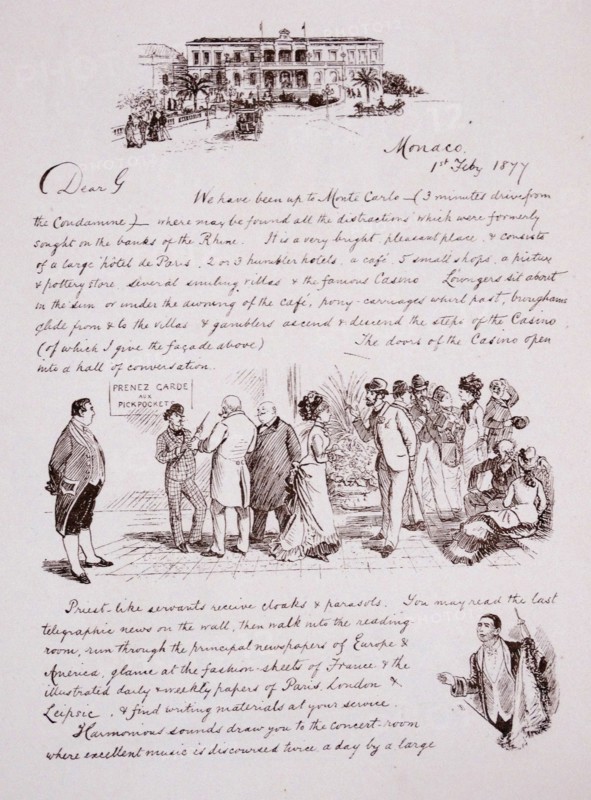 Monaco.
1st Feby 1877
Dear G
We have been up to Monte Carlo — (3 minutes drive from
the Condamine) — where may be found all the distractions which were formerly
sought on the banks of the Rhine. It is a very bright, pleasant place, & consists
of a large hôtel de Paris, 2 or 3 humbler hotels, a café, 5 small shops, a picture
& pottery store, several smiling villas & the famous Casino Loungers sit about
in the sun or under the awning of the café, pony-carriages whirl past, broughams
glide from & to the villas & gamblers ascend & descend the steps of the Casino
(of which I give the façade above) The doors of the Casino open
into a hall of conversation.
PRENEZ GARDE
AUX
PICKPOCKETS
Priest-like servants receive cloaks & parasols. You may read the last
telegraphic news on the wall, then walk into the reading-
room, run through the principal newspapers of Europe &
America, glance at the fashion-sheets of France & the
illustrated daily & weekly papers of Paris, London &
Leipsic, & find writing materials at your service.
Harmonious sounds draw you to the concert-room
where excellent music is discoursed twice a day by a large